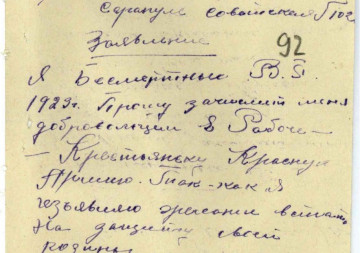 Сарапуль советская 102
92
Заявление
Я Бесмертных В. Г.
1923 г. Прошу зачислит меня
добровольцем в Рабоче-
- Крестьяньку Красную
Армию. Так-как я
изъявляю желание встать
На защиту своей
родины